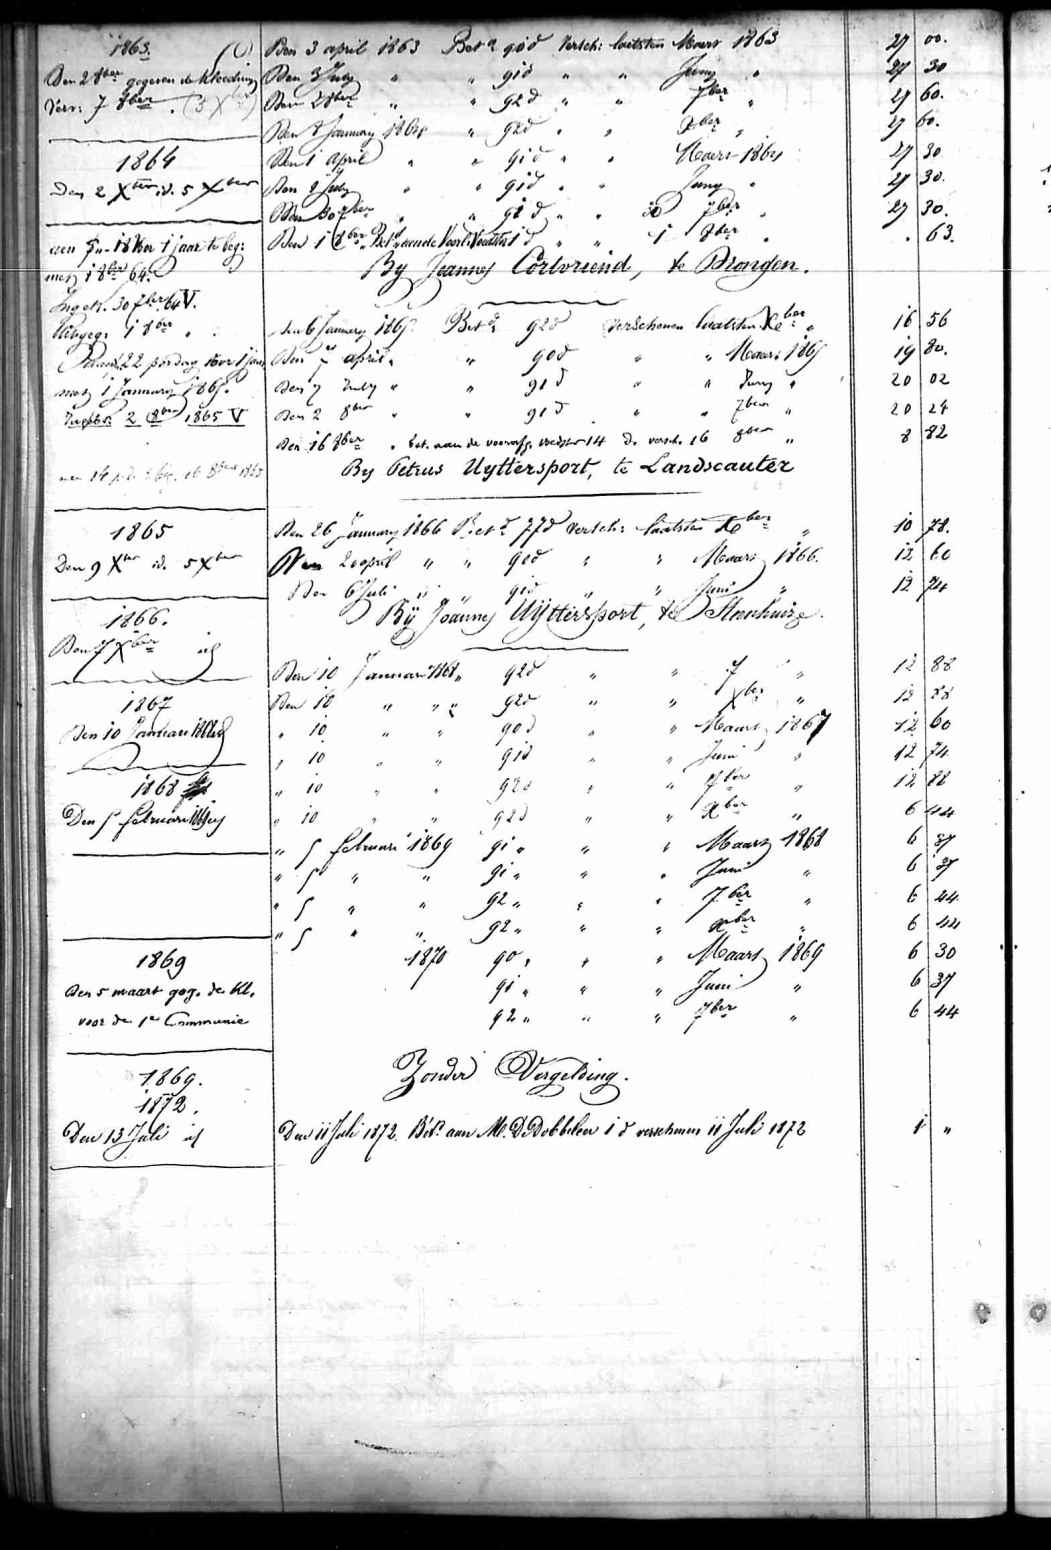 1863.
Den 2 8ber gegeven de kleeding
Verv: 7 8ber
1864
den 2 Xber id. 5 Xber
1 jaar te beg:
met 1 8ber 64.
Inget. 30 7ber 64 V.
Uitgeg. 1 8ber "
met 1 January 1865.
2 8ber 1865 V
16 8ber 1865
1865
Den 9 Xber id. 5 Xber
1866.
Den 7 Xber id
1867
Den 10 Januari 1868 id
1868
Den 5 februari 1869 id
1869
Den 5 maart geg. de kl.
voor de 1e Communie
1869.
1872.
Den 13 Juli id
Den 3 april 1863 Betd 90 d versch: laatsten Maart 1863 27 00.
Den 3 July " " 91 d " " Juny " 27 30
Den 2 8ber " " 92 d " " 7ber " 27 60.
Den 8 January 1864 " 92 d " " Xber " 27 60.
Den 1 April " " 91 d " " Maart 1864 27 30
Den 9 July " " 91 d " " Juny " 27 30.
Den 30 7ber " " 91 d " " 30 7ber " 27 30.
Den 1 8ber " Betd aan de 1 d " " 1 8ber " . 63.
By Joannes Cortvriend, te Drongen.
den 6 January 1865. Betd 92 d verschenen laatsten Xber " 16 56
Den 7 april " " 90 d " " Maart 1865 19 80.
Den 7 July " " 91 d " " Juny " 20 02
Den 2 8ber " " 91 d " " 7ber " 20 24
Den 16 8ber " bet. aan de voorafg. voedster 14 d. versch. 16 8ber " 8 82
By Petrus Uyttersport, te Landscauter
Den 26 January 1866 Betd 77 d versch: laatsten Xber " 10 78.
Den 20 april " " 90 d " " Maart 1866. 12 60
Den 6 Juli " " 91 d " " Juni " 12 74
By Joannes Uyttersport, te Steenhuize.
Den 10 Januari 1868 " 92 d " " 7 " 12 88
Den 10 " " " 92 d " " Xber " 12 88
" 10 " " 90 d " " Maart 1867 12 60
" 10 " " 91 d " " Juni " 12 74
" 10 " " 92 d " " 7ber " 12 88
" 10 " " 92 d " " Xber " 6 44
" 5 februari 1869 91 " " " Maart 1868 6 37
" 5 " " 91 " " " Juni " 6 37
" 5 " " 92 " " " 7ber " 6 44
" 5 " " 92 " " " Xber " 6 44
1870 90 " " " Maart 1869 6 30
91 " " " Juni " 6 37
92 " " " 7ber " 6 44
Zonder Vergelding.
Den 11 Juli 1872. Betd aan M. De Dobbeleer 1 d verschenen 11 Juli 1872 1 "